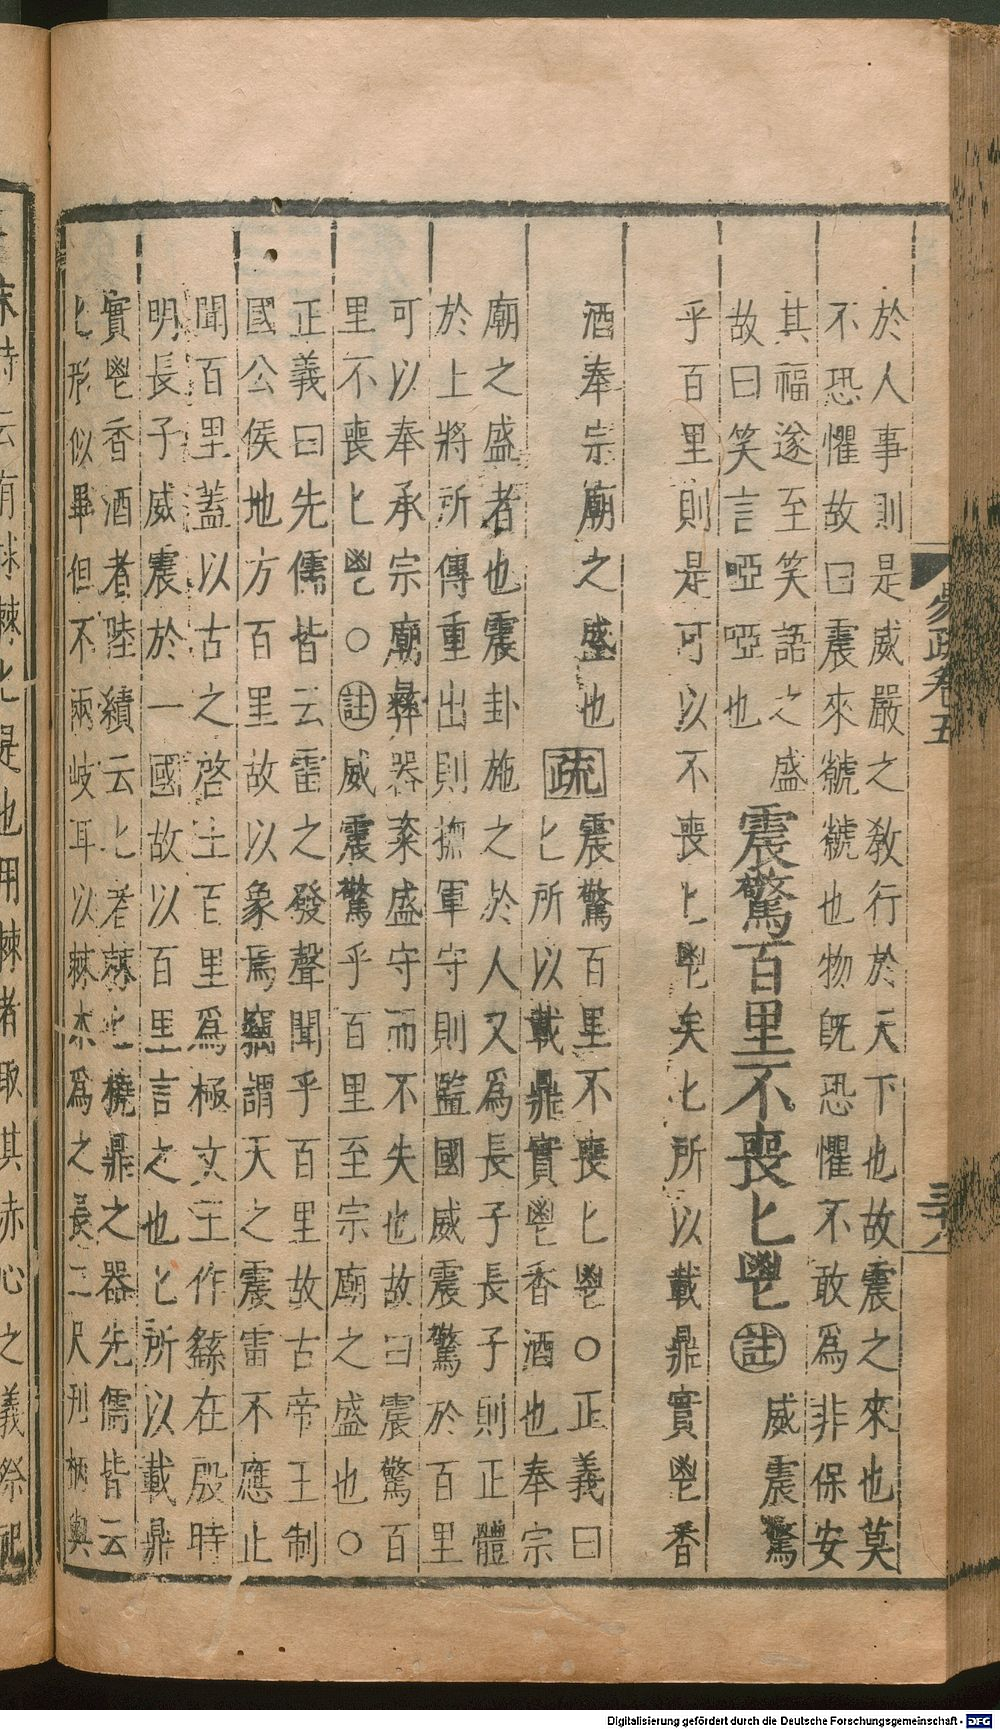 於人事則是威嚴之敎行於天下也故震之來也莫
不恐懼故曰震來虩虩也物旣恐懼不敢爲非保安
其福遂至笑語之盛
故曰笑言啞啞也
震驚百里不喪匕鬯
註
威震驚
乎百里則是可以不喪匕鬯矣匕所以載鼎實鬯香
酒奉宗廟之盛也
疏
震驚百里不喪匕鬯○正義曰
匕所以載鼎實鬯香酒也奉宗
廟之盛者也震卦施之於人又爲長子長子則正體
於上將所傳重出則撫軍守則監國威震驚於百里
可以奉承宗廟彝器粢盛守而不失也故曰震驚百
里不喪匕鬯○註威震驚乎百里至宗廟之盛也○
正義曰先儒皆云雷之發聲聞乎百里故古帝王制
國公侯地方百里故以象焉竊謂天之震雷不應止
聞百里蓋以古之啓土百里爲極文王作繇在殷時
明長子威震於一國故以百里言之也匕所以載鼎
實鬯香酒者陸績云匕者棘匕橈鼎之器先儒皆云
匕形似畢但不兩岐耳以棘木爲之長二尺刊柄與
易疏卷五
三十八
末詩云有捄棘匕是也用棘者取其赤心之義祭祀
Digitalisierung gefördert durch die Deutsche Forschungsgemeinschaft - DFG